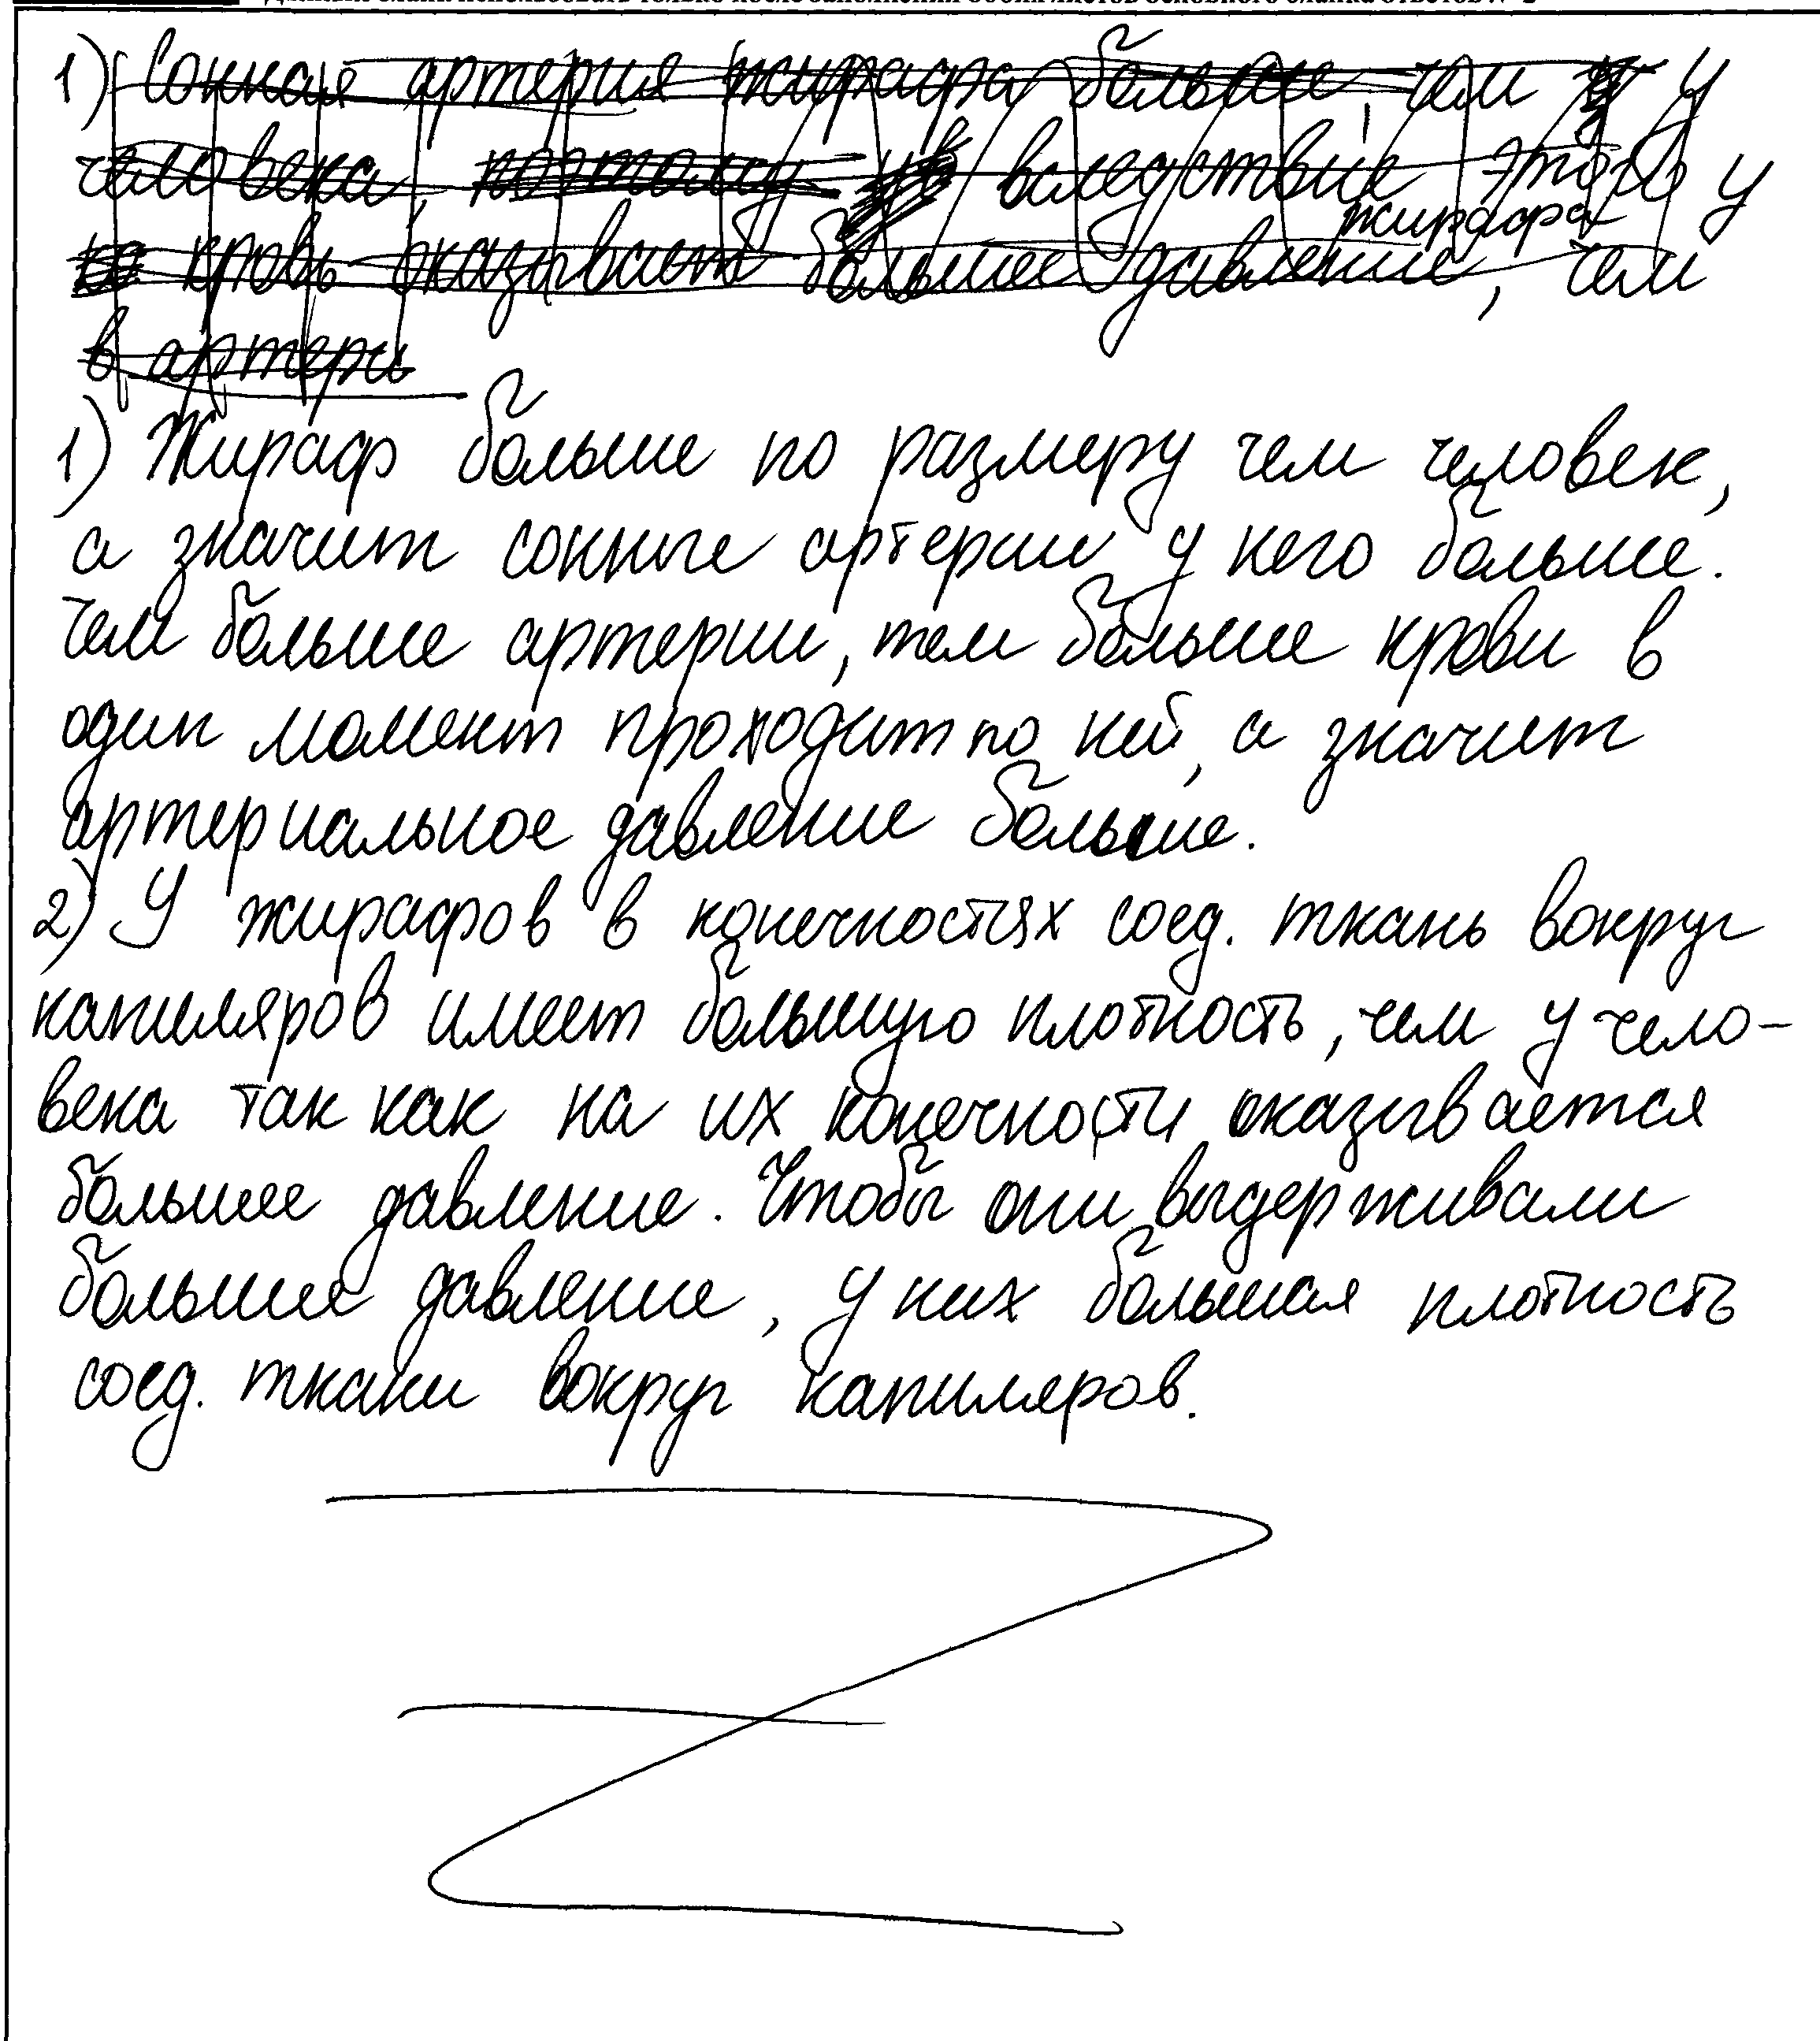 1) Сонная артерия жирафа больше, чем у
человека, поэтому вследствие этого у
жирафа
кровь оказывает большее давление, чем
в артери
1) Жираф больше по размеру чем человек,
а значит сонные артерии у него больше.
Чем больше артерии, тем больше крови в
один момент проходит по ней, а значит
артериальное давление больше.
2) У жирафов в конечностях соед. ткань вокруг
капиляров имеет большую плотность, чем у чело-
века так как на их конечности оказывается
большее давление. Чтобы они выдерживали
большее давление, у них большая плотность
соед. ткани вокруг капиляров.